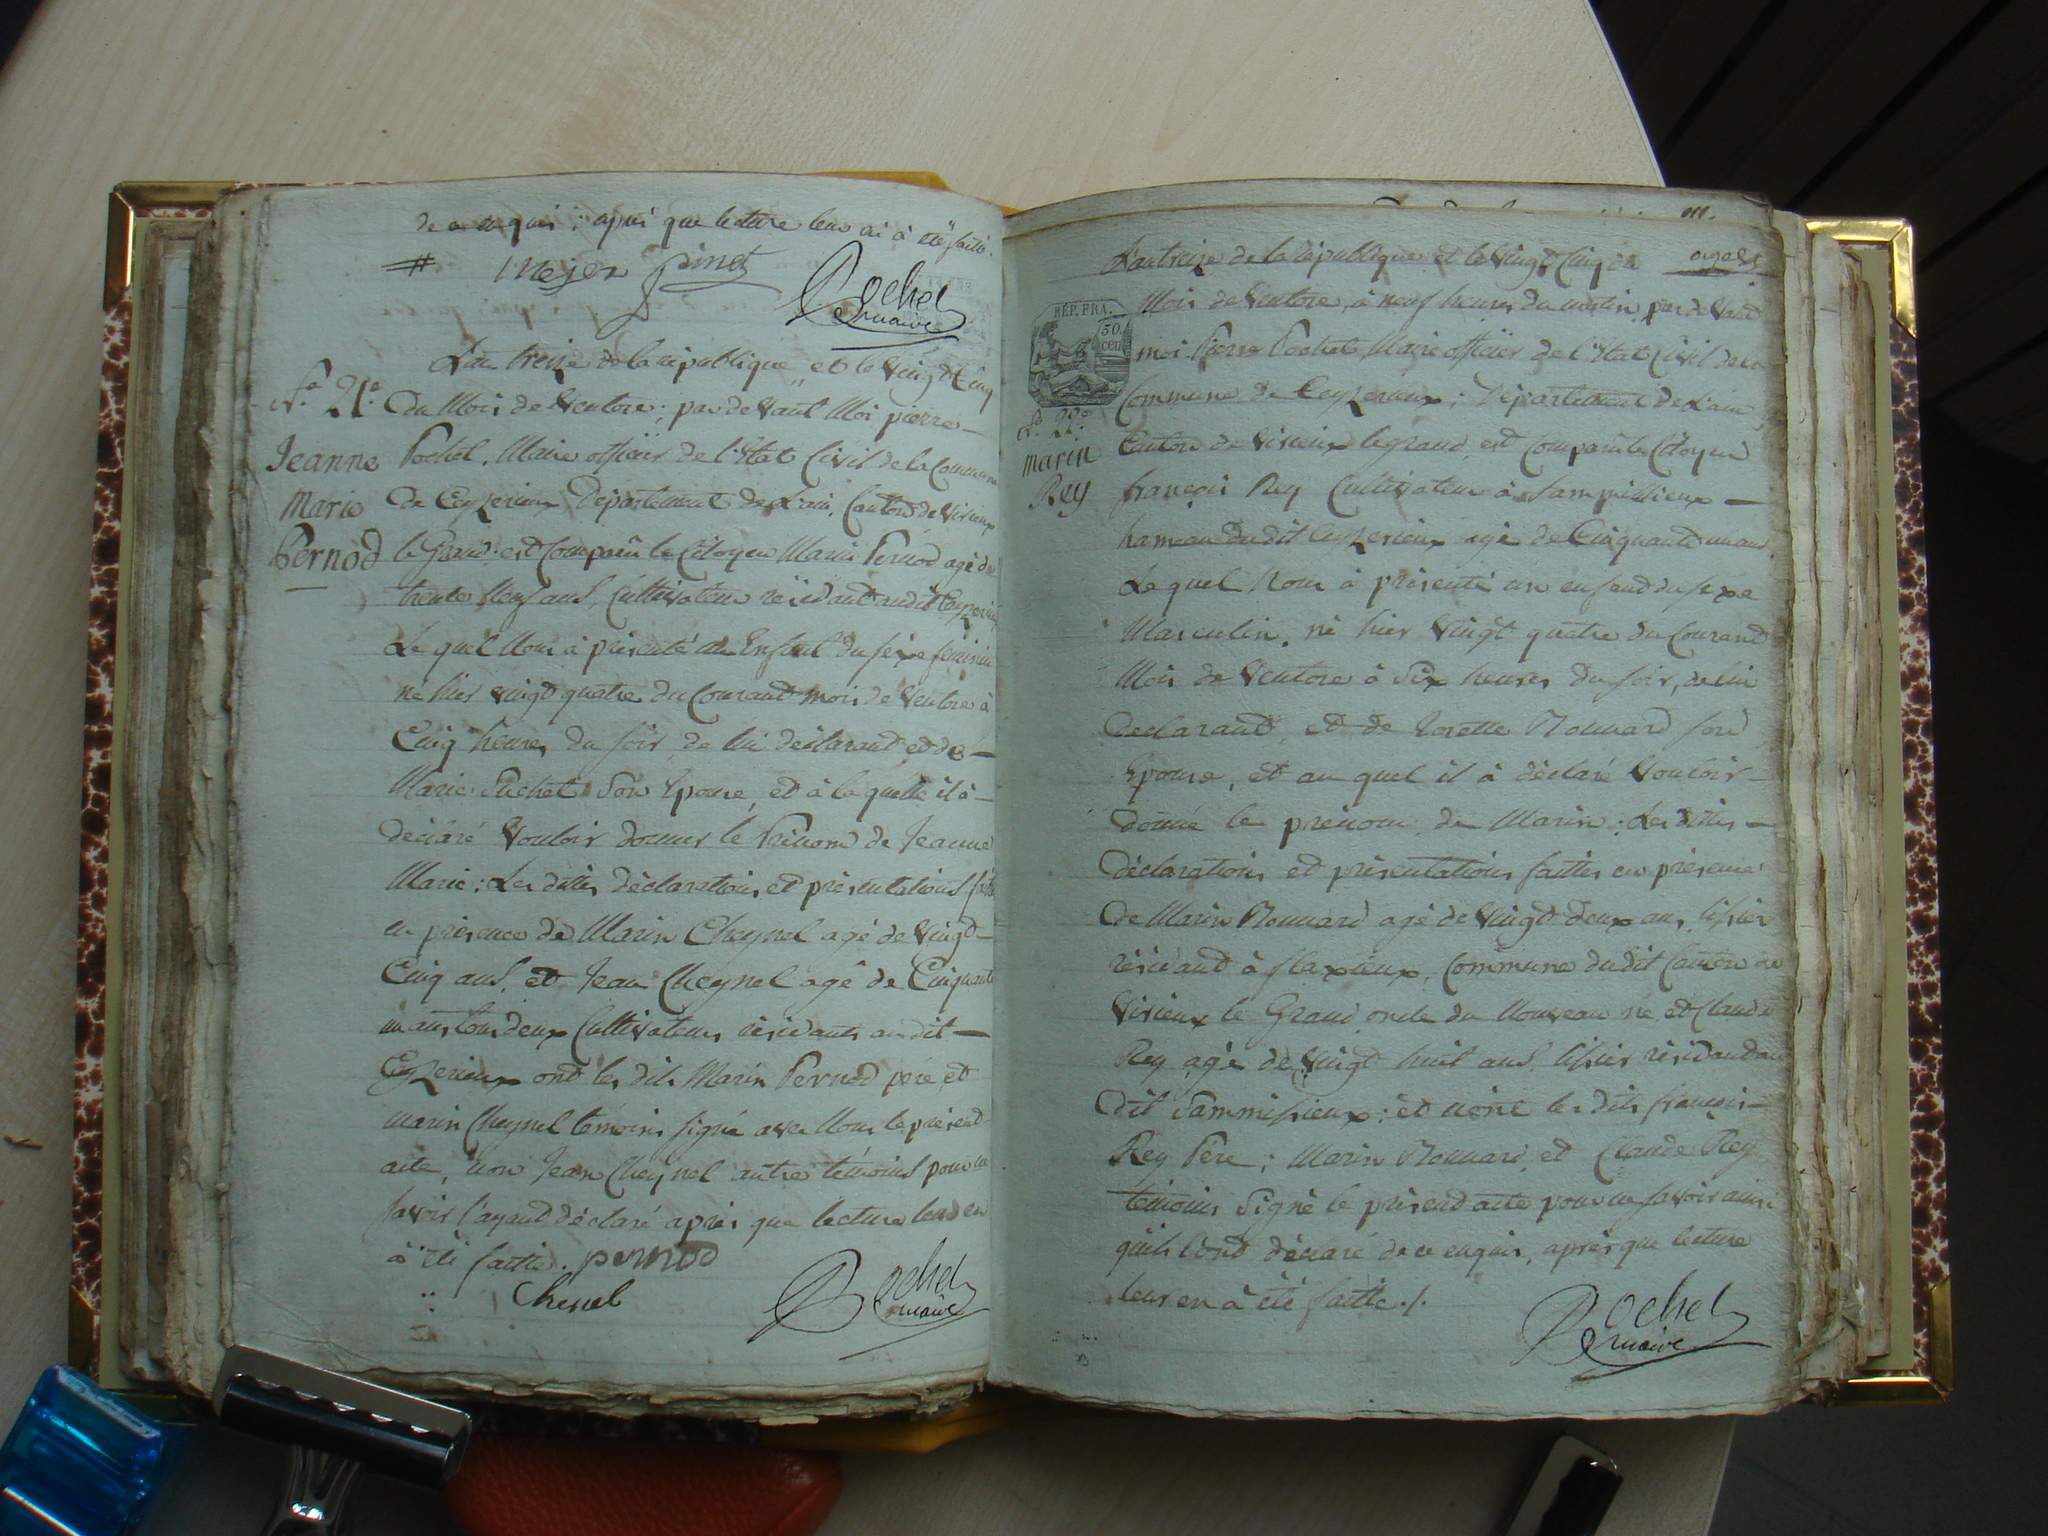 de ce enquis ; après que lecture leur en a été faitte.
Mejer pinet
Pochet
maire
L'an treize de la république et le vingt Cinq
N.º 21.e
du Mois de Ventose ; par devant Moi pierre
Jeanne
Marie
Pernod
Pochet, Maire officier de l'Etat Civil de la Commune
de Ceyzerieux Département de L'ain, Canton de Virieux
le Grand : est Comparû le Citoyen Marin Pernod agé de
trente Neuf ans, Cultivateur résidant audit Ceyzerieux
Le quel Nous à présenté un Enfant du séxe féminin
né hier vingt quatre du Courant mois de Ventose à
Cinq heures du soir, de lui déclarant et de
Marie Suchet Son Epouse, et à la quelle il à
déclaré Vouloir donner le Prénom de Jeanne
Marie : Les dittes déclarations et présentations faittes
en présence de Marin Cheynel agé de Vingt
Cinq ans, et Jean Cheynel agé de Cinquante
un ans tous deux Cultivateurs résidants audit
Ceyzerieux ont les dits Marin Pernod père, et
marin Cheynel témoins signé avec Nous le présent
acte, non Jean Cheynel autre témoins pour ne
savoir l'ayant déclaré après que lecture leur en
à été faitte. pernod
Chenel
Pochet
maire
L'an treize de la république et le vingt Cinq du
Mois de Ventose, à neuf heures du matin, par devant
RÉP. FRA.
50.
cen
moi Pierre Pochet Maire officier de l'Etat Civil de la
Commune de Ceyzerieux ; Département de L'ain
N.º 22.e
Marin
Rey
Canton de Virieux legrand, est Comparu le Citoyen
françois Rey Cultivateur à Sammissieux
hameau dudit Ceyzerieux agé de Cinquante un ans
Le quel Nous à présenté un enfant du sexe
Masculin, né hier Vingt quatre du Courant
Mois de Ventose à Six heures du soir, de lui
declarant, et de Josette Monnard son
Epouse, et au quel il à déclaré Vouloir
donné le prénom de Marin : Les dittes
déclarations et présentations faittes en présence
de Marin Monnard agé de Vingt deux ans, tissier
résidant à flaxieux, Commune dudit Canton de
Virieux le Grand, oncle du Nouveau né, et Claude
Rey agé de Vingt huit ans, tissier résidant au
dit Sammissieux : et n'ont les dits françois
Rey Père ; Marin Monnard, et Claude Rey
témoins Signé le présent acte pour ne savoir ainsi
qu'ils l'ont déclaré de ce enquis, après que lecture
leur en à été faitte ./.
Pochet
maire